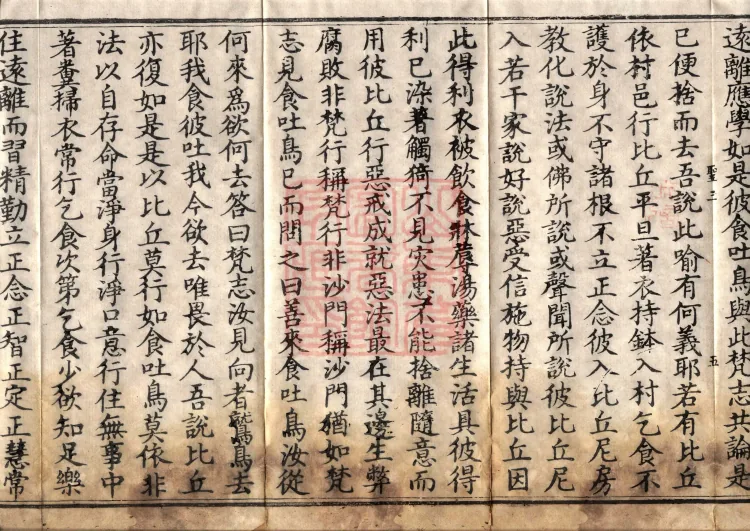 遠離應學如是彼食吐鳥與此梵志共論是
已便捨而去吾說此喻有何義耶若有比丘
依村邑行比丘平旦著衣持鉢入村乞食不
護於身不守諸根不立正念彼入比丘尼房
教化說法或佛所說或聲聞所說彼比丘尼
入若干家說好說惡受信施物持與比丘因
此得利衣被飲食牀蓐湯藥諸生活具彼得
利已染著觸猗不見灾患不能捨離隨意而
用彼比丘行惡戒成就惡法最在其邊生弊
腐敗非梵行稱梵行非沙門稱沙門猶如梵
志見食吐鳥已而問之曰善來食吐鳥汝從
何來爲欲何去答曰梵志汝見向者鷲鳥去
耶我食彼吐我今欲去唯畏於人吾說比丘
亦復如是是以比丘莫行如食吐鳥莫依非
法以自存命當淨身行淨口意行住無事中
著糞掃衣常行乞食次第乞食少欲知足樂
住遠離而習精勤立正念正智正定正慧常
聖三
五